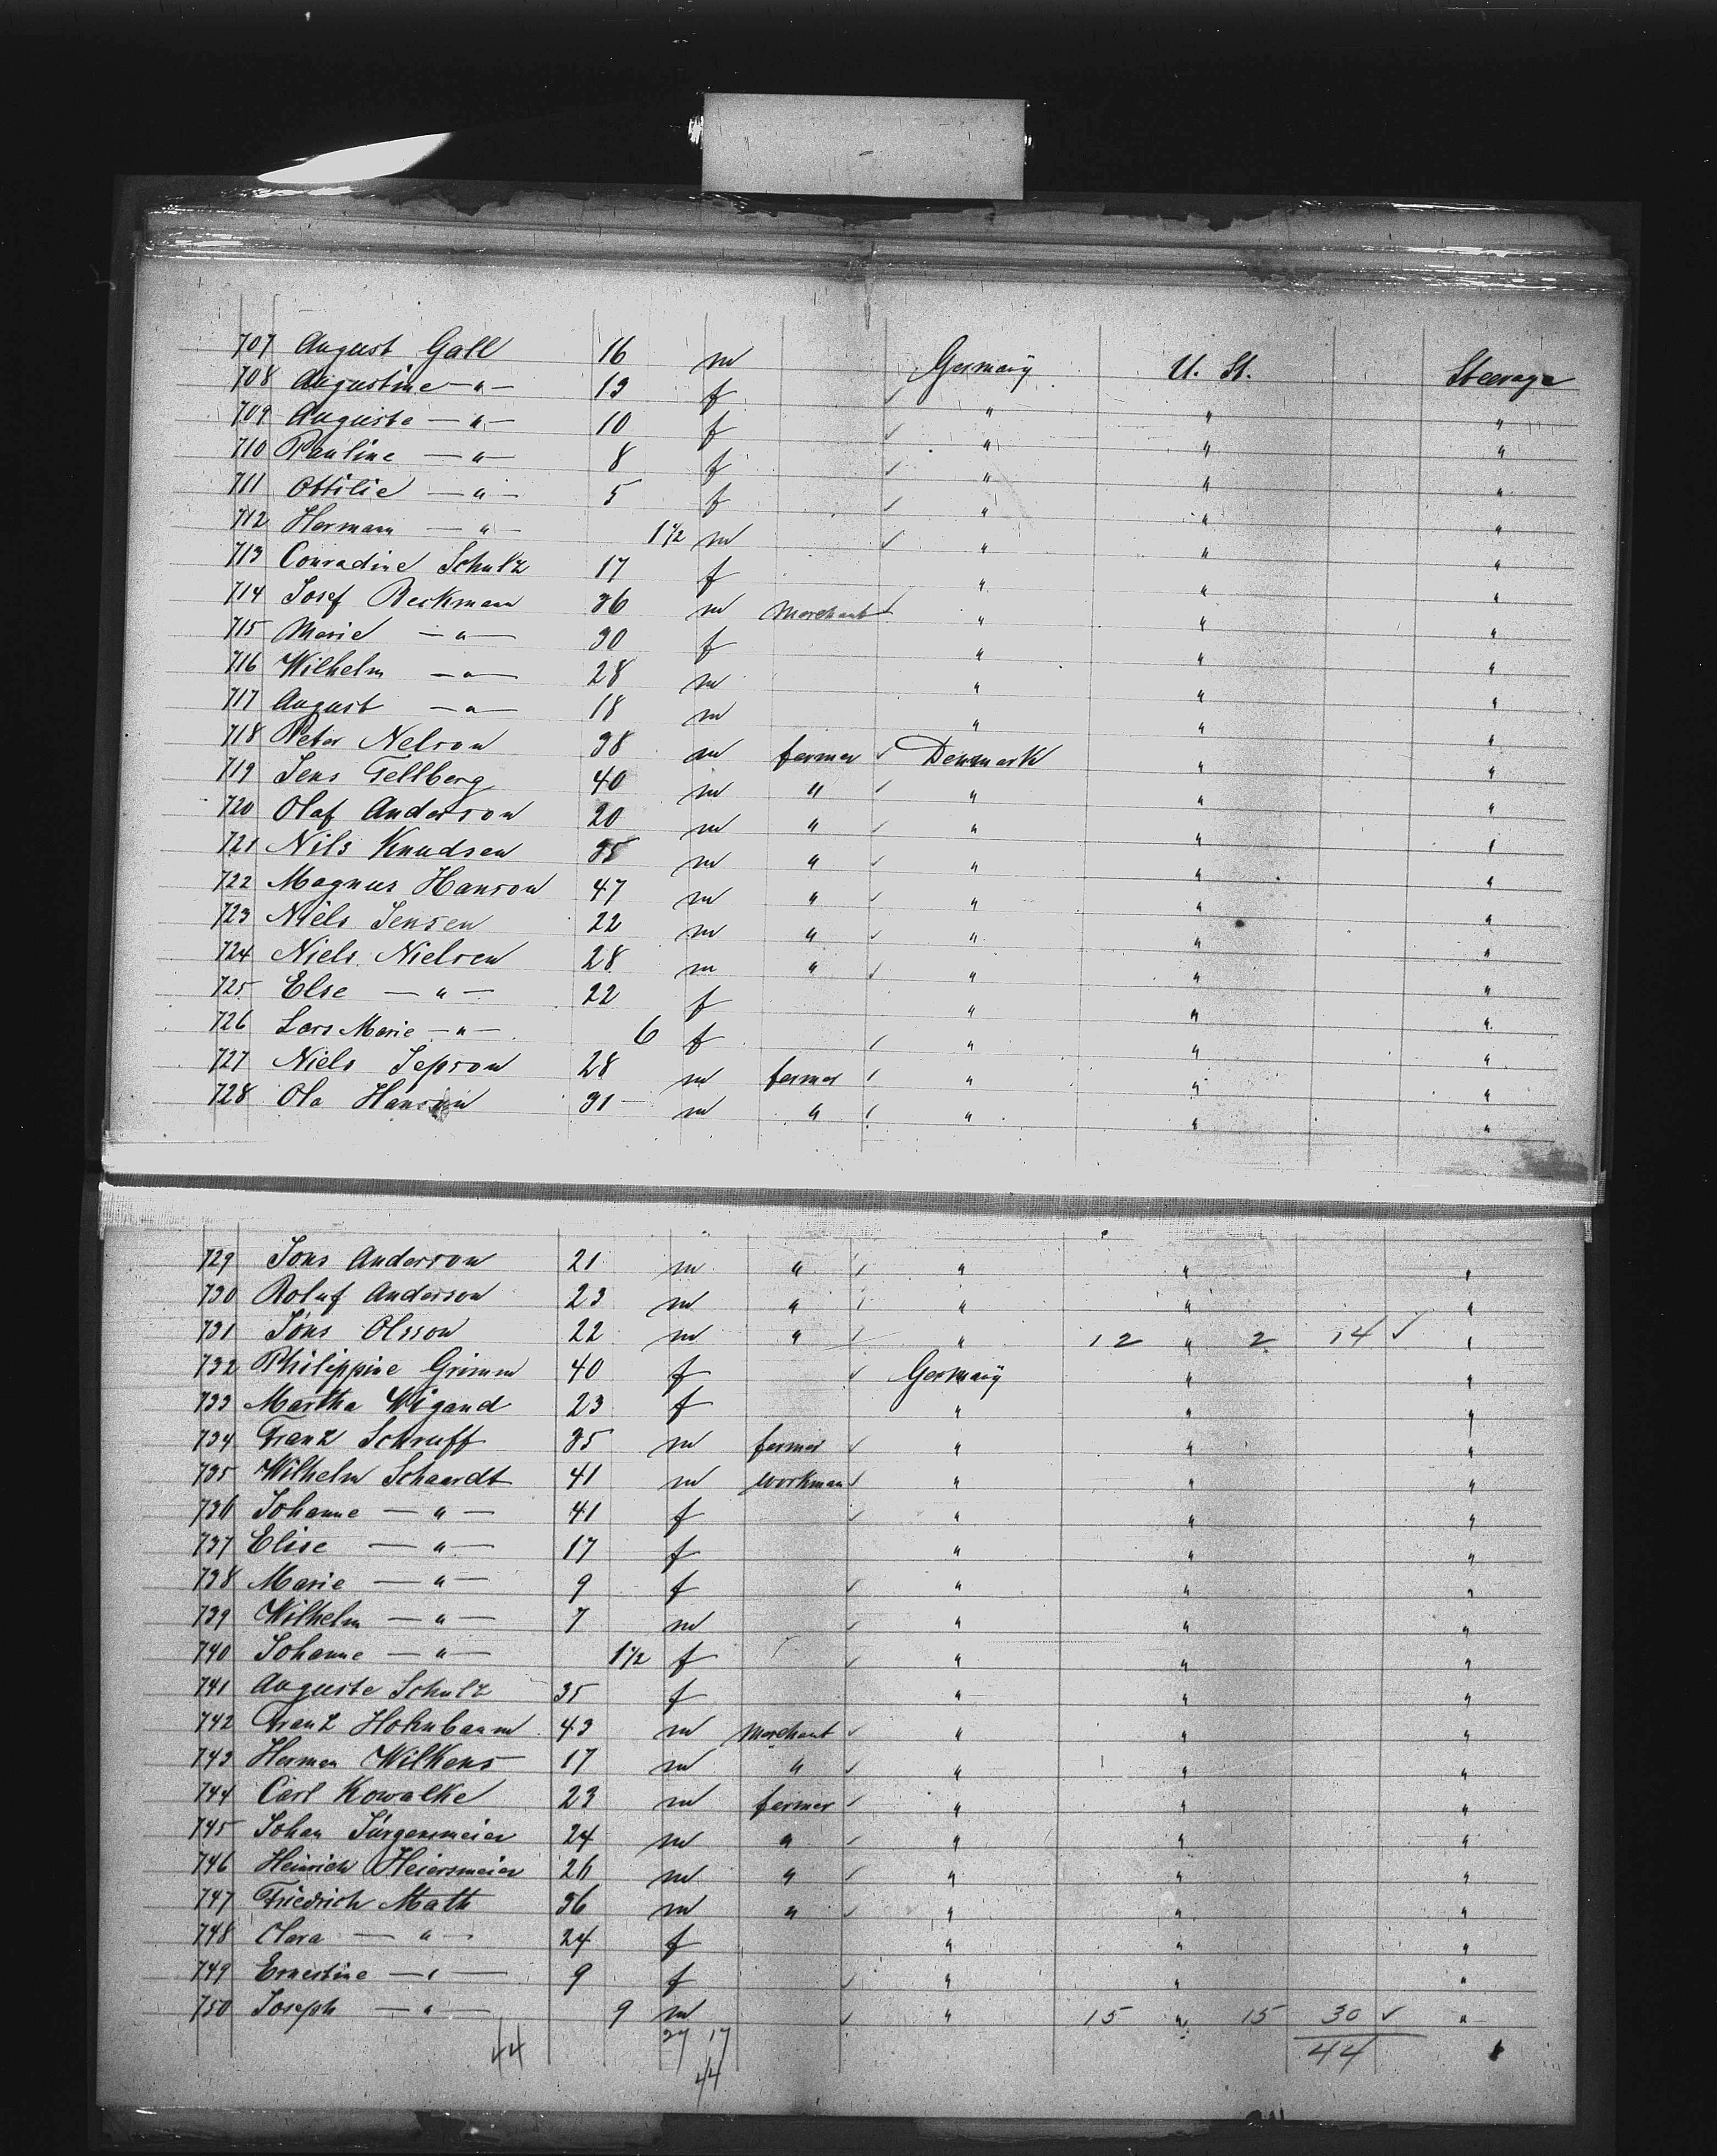 707 August Gall 16 m Germany U. St. Steerage
708 Augustine — " — 13 f ✓ " " "
709 Auguste — " — 10 f ✓ " " "
710 Pauline — " — 8 f ✓ " " "
711 Ottilie — " — 5 f ✓ " " "
712 Hermann — " — 1 1/2 m ✓ " " "
713 Conradine Schulz 17 f " " "
714 Josef Beckmann 36 m Merchant ✓ " " "
715 Marie — " — 30 f " " "
716 Wilhelm — " — 28 m " " "
717 August — " — 18 m " " "
718 Peter Nelson 38 m farmer ✓ Denmark " "
719 Jens Tellberg 40 m " ✓ " " "
720 Olaf Anderson 20 m " ✓ " " "
721 Nils Knudsen 35 m " ✓ " " "
722 Magnus Hanson 47 m " ✓ " " "
723 Niels Jensen 22 m " ✓ " " "
724 Niels Nielsen 28 m " ✓ " " "
725 Else — " — 22 f " " "
726 Lars Marie — " — 6 f ✓ " " "
727 Niels Jepson 28 m farmer ✓ " " "
728 Ola Hanson 31 — m " ✓ " " "
729 Jons Anderson 21 m " ✓ " " "
730 Roluf Anderson 23 m " ✓ " " "
731 Jöns Olsson 22 m " ✓ " 12 " 2 14 ✓ "
732 Philippine Grimm 40 f ✓ Germany " "
733 Martha Wigand 23 f " " "
734 Franz Schruff 35 m farmer ✓ " " "
735 Wilhelm Schaardt 41 m workman ✓ " " "
736 Johanne — " — 41 f ✓ " " "
737 Elise — " — 17 f " " "
738 Marie — " — 9 f ✓ " " "
739 Wilhelm — " — 7 m ✓ " " "
740 Johanne — " — 1 1/2 f ✓ " " "
741 Auguste Schulz 35 f " " "
742 Franz Hohnbaum 43 m Merchant ✓ " " "
743 Herman Wilkens 17 m " ✓ " " "
744 Carl Kowalke 23 m farmer ✓ " " "
745 Johan Jürgensmeier 24 m " ✓ " " "
746 Heinrich Heiersmeier 26 m " ✓ " " "
747 Friedrich Math 36 m " ✓ " " "
748 Clara — " — 24 f " " "
749 Ernestine — " — 9 f ✓ " " "
750 Joseph — " — 9 m ✓ " 15 " 15 30 ✓ "
44 27 17 44
44